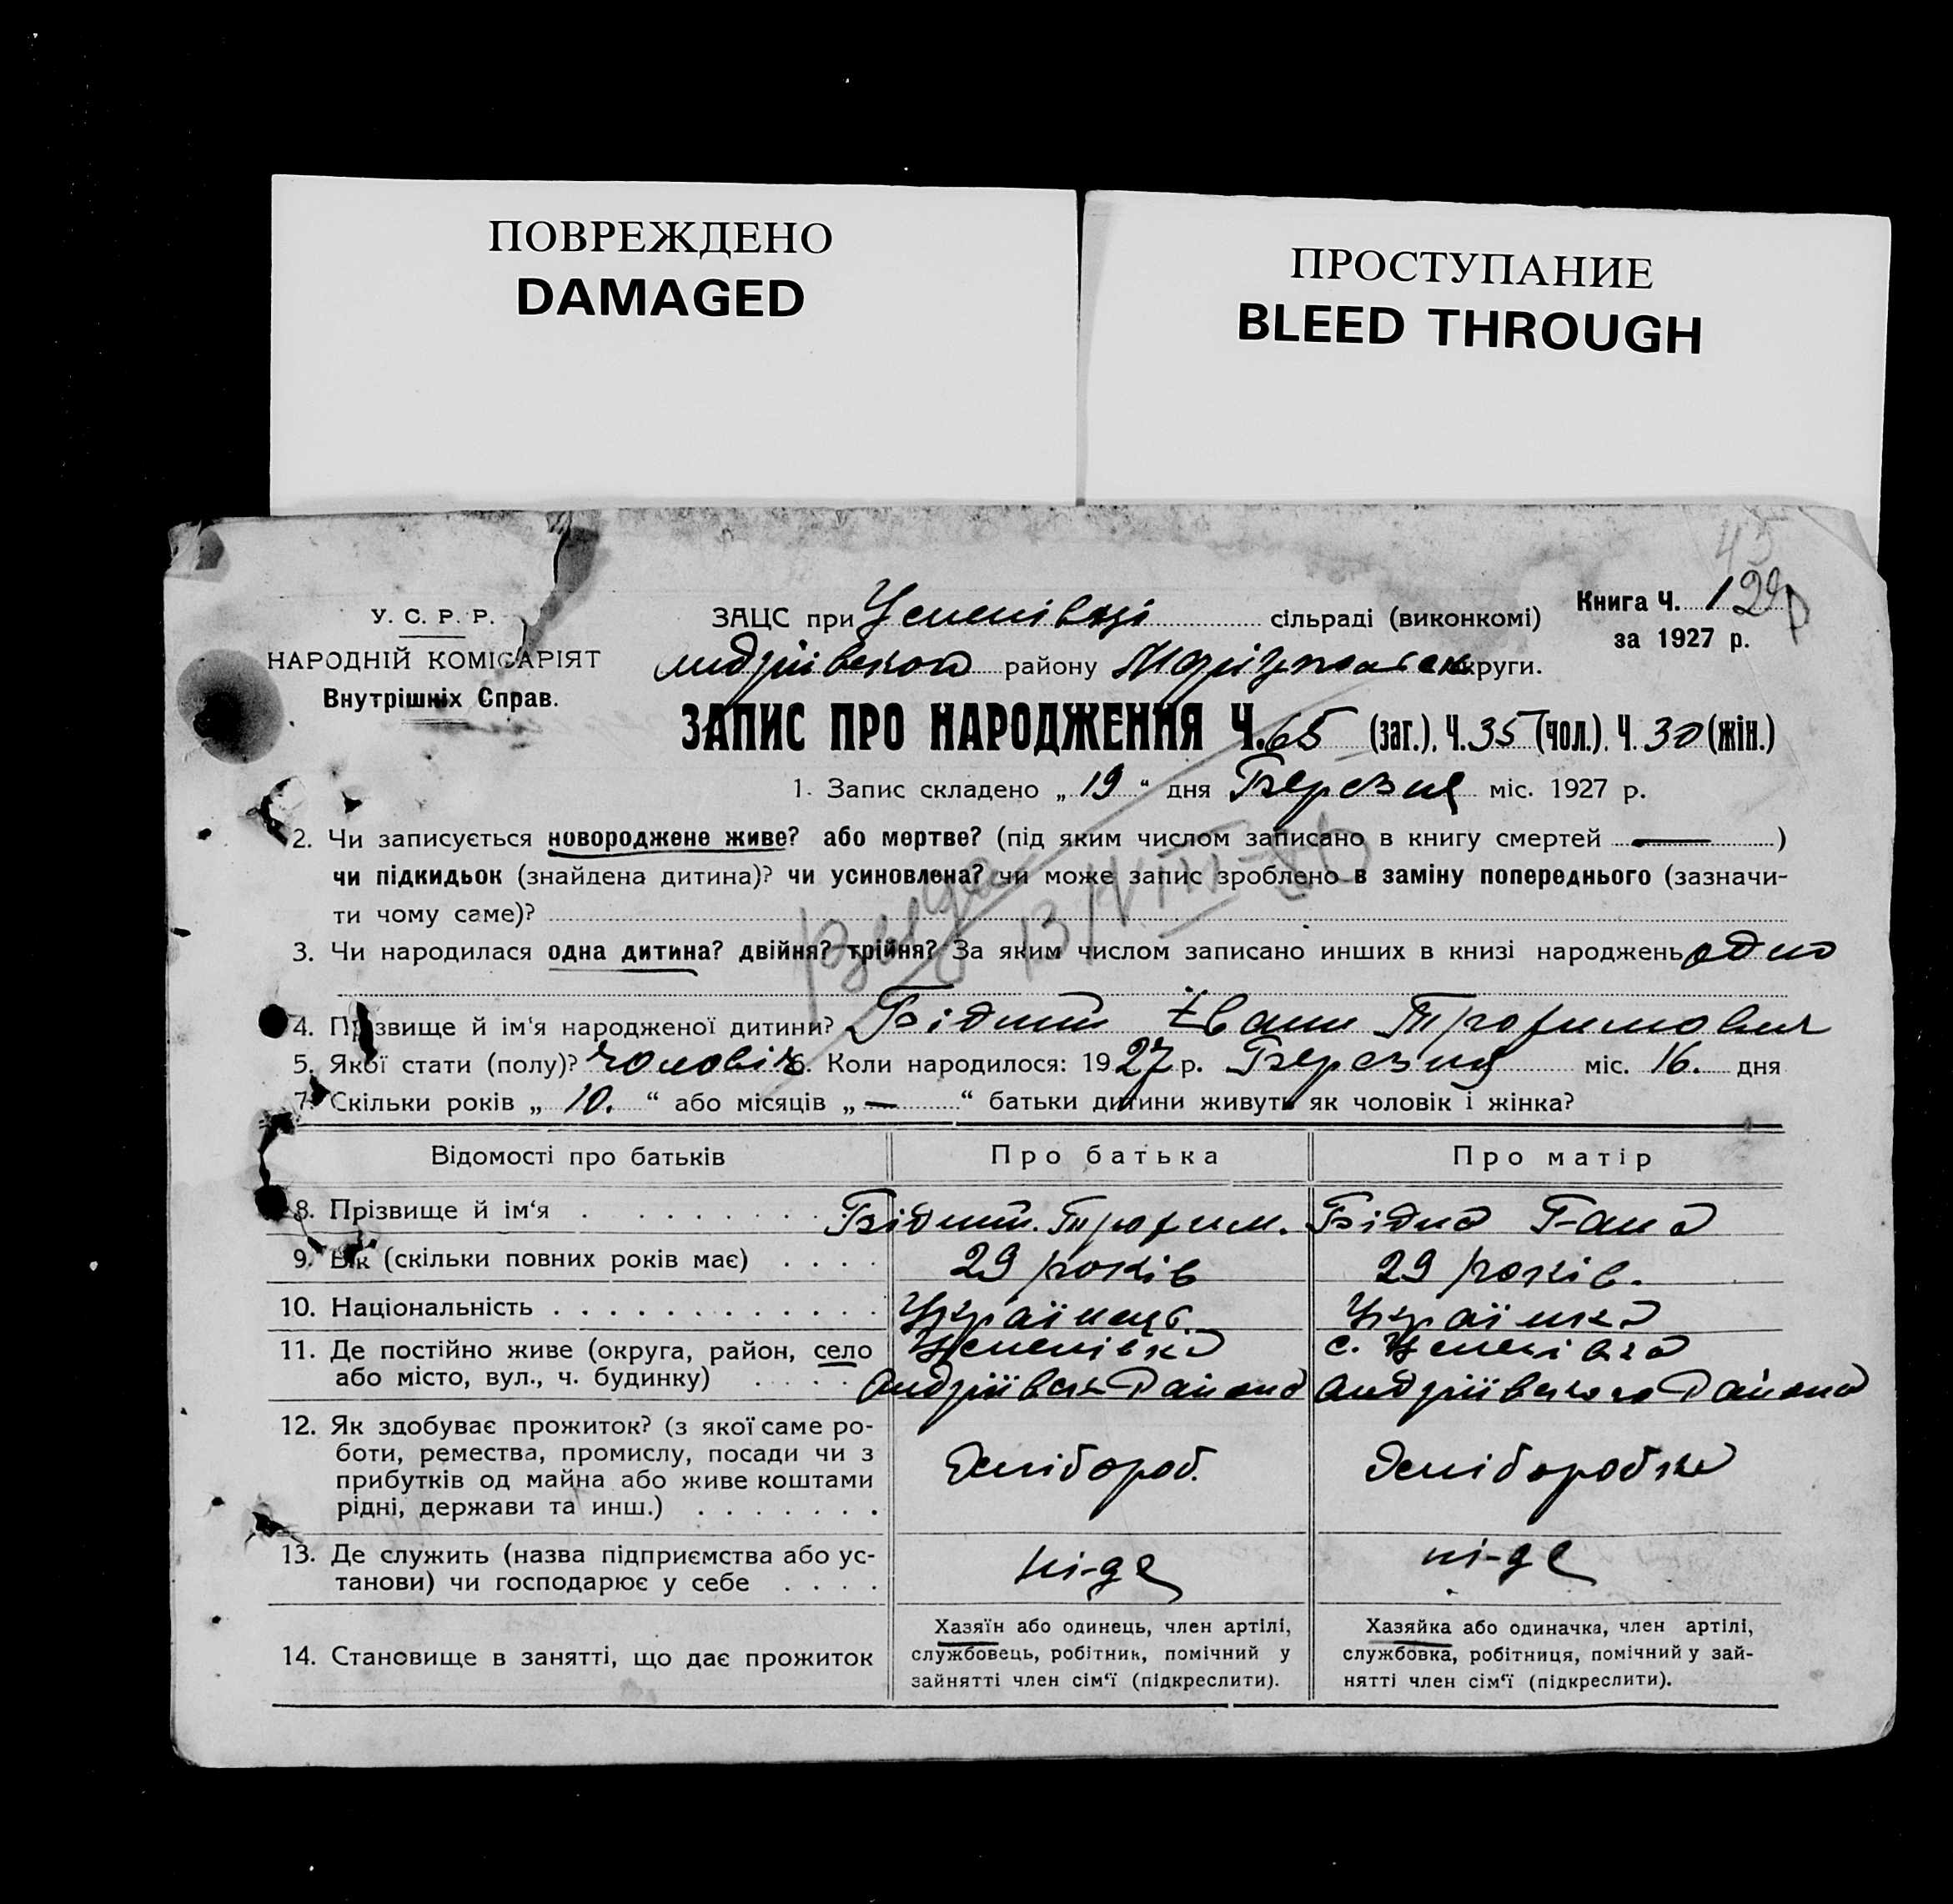 ПОВРЕЖДЕНО
DAMAGED
ПРОСТУПАНИЕ
BLEED THROUGH
45
У. С. Р. Р.
НАРОДНІЙ КОМІСАРІЯТ
Внутрішніх Справ.
ЗАЦС при Успенівці сільраді (виконкомі)
Андріївского району округи.
Книга Ч. 1
за 1927 р.
ЗАПИС ПРО НАРОДЖЕННЯ Ч. 65 (заг.), Ч. 35 (чол.). Ч. 30 (жін.)
1. Запис складено „ 19 “ дня Березня міс. 1927 р.
2. Чи записується новороджене живе? або мертве? (під яким числом записано в книгу смертей — )
чи підкидьок (знайдена дитина)? чи усиновлена? чи може запис зроблено в заміну попереднього (зазначи-
ти чому саме)?
3. Чи народилася одна дитина? двійня? трійня? За яким числом записано инших в книзі народжень одно
4. Прізвище й ім‘я народженої дитини? Бідний Іван Трофимович
5. Якої стати (полу)? чоловіч 6. Коли народилося: 1927 р. Березня міс. 16. дня
7. Скільки років „ 10. “ або місяців „ — “ батьки дитини живуть як чоловік і жінка?
Відомості про батьків Про батька Про матір
8. Прізвище й ім‘я Бідний Трофим. Бідна Гана
9. Вік (скільки повних років має) 29 років 29 років.
10. Національність Українець. Українка
11. Де постійно живе (округа, район, село Успенівка с. Успенівка
або місто, вул., ч. будинку) Андріївськ Района Андріївского Района
12. Як здобуває прожиток? (з якої саме ро-
боти, ремества, промислу, посади чи з
прибутків од майна або живе коштами
рідні, держави та инш.)
Хліброб. Хліборобка
13. Де служить (назва підприємства або ус-
танови) чи господарює у себе
ні-де ні-де
14. Становище в занятті, що дає прожиток
Хазяїн або одинець, член артілі,
службовець, робітник, помічний у
зайнятті член сім‘ї (підкреслити).
Хазяйка або одиначка, член артілі,
службовка, робітниця, помічний у зай-
нятті член сім‘ї (підкреслити).